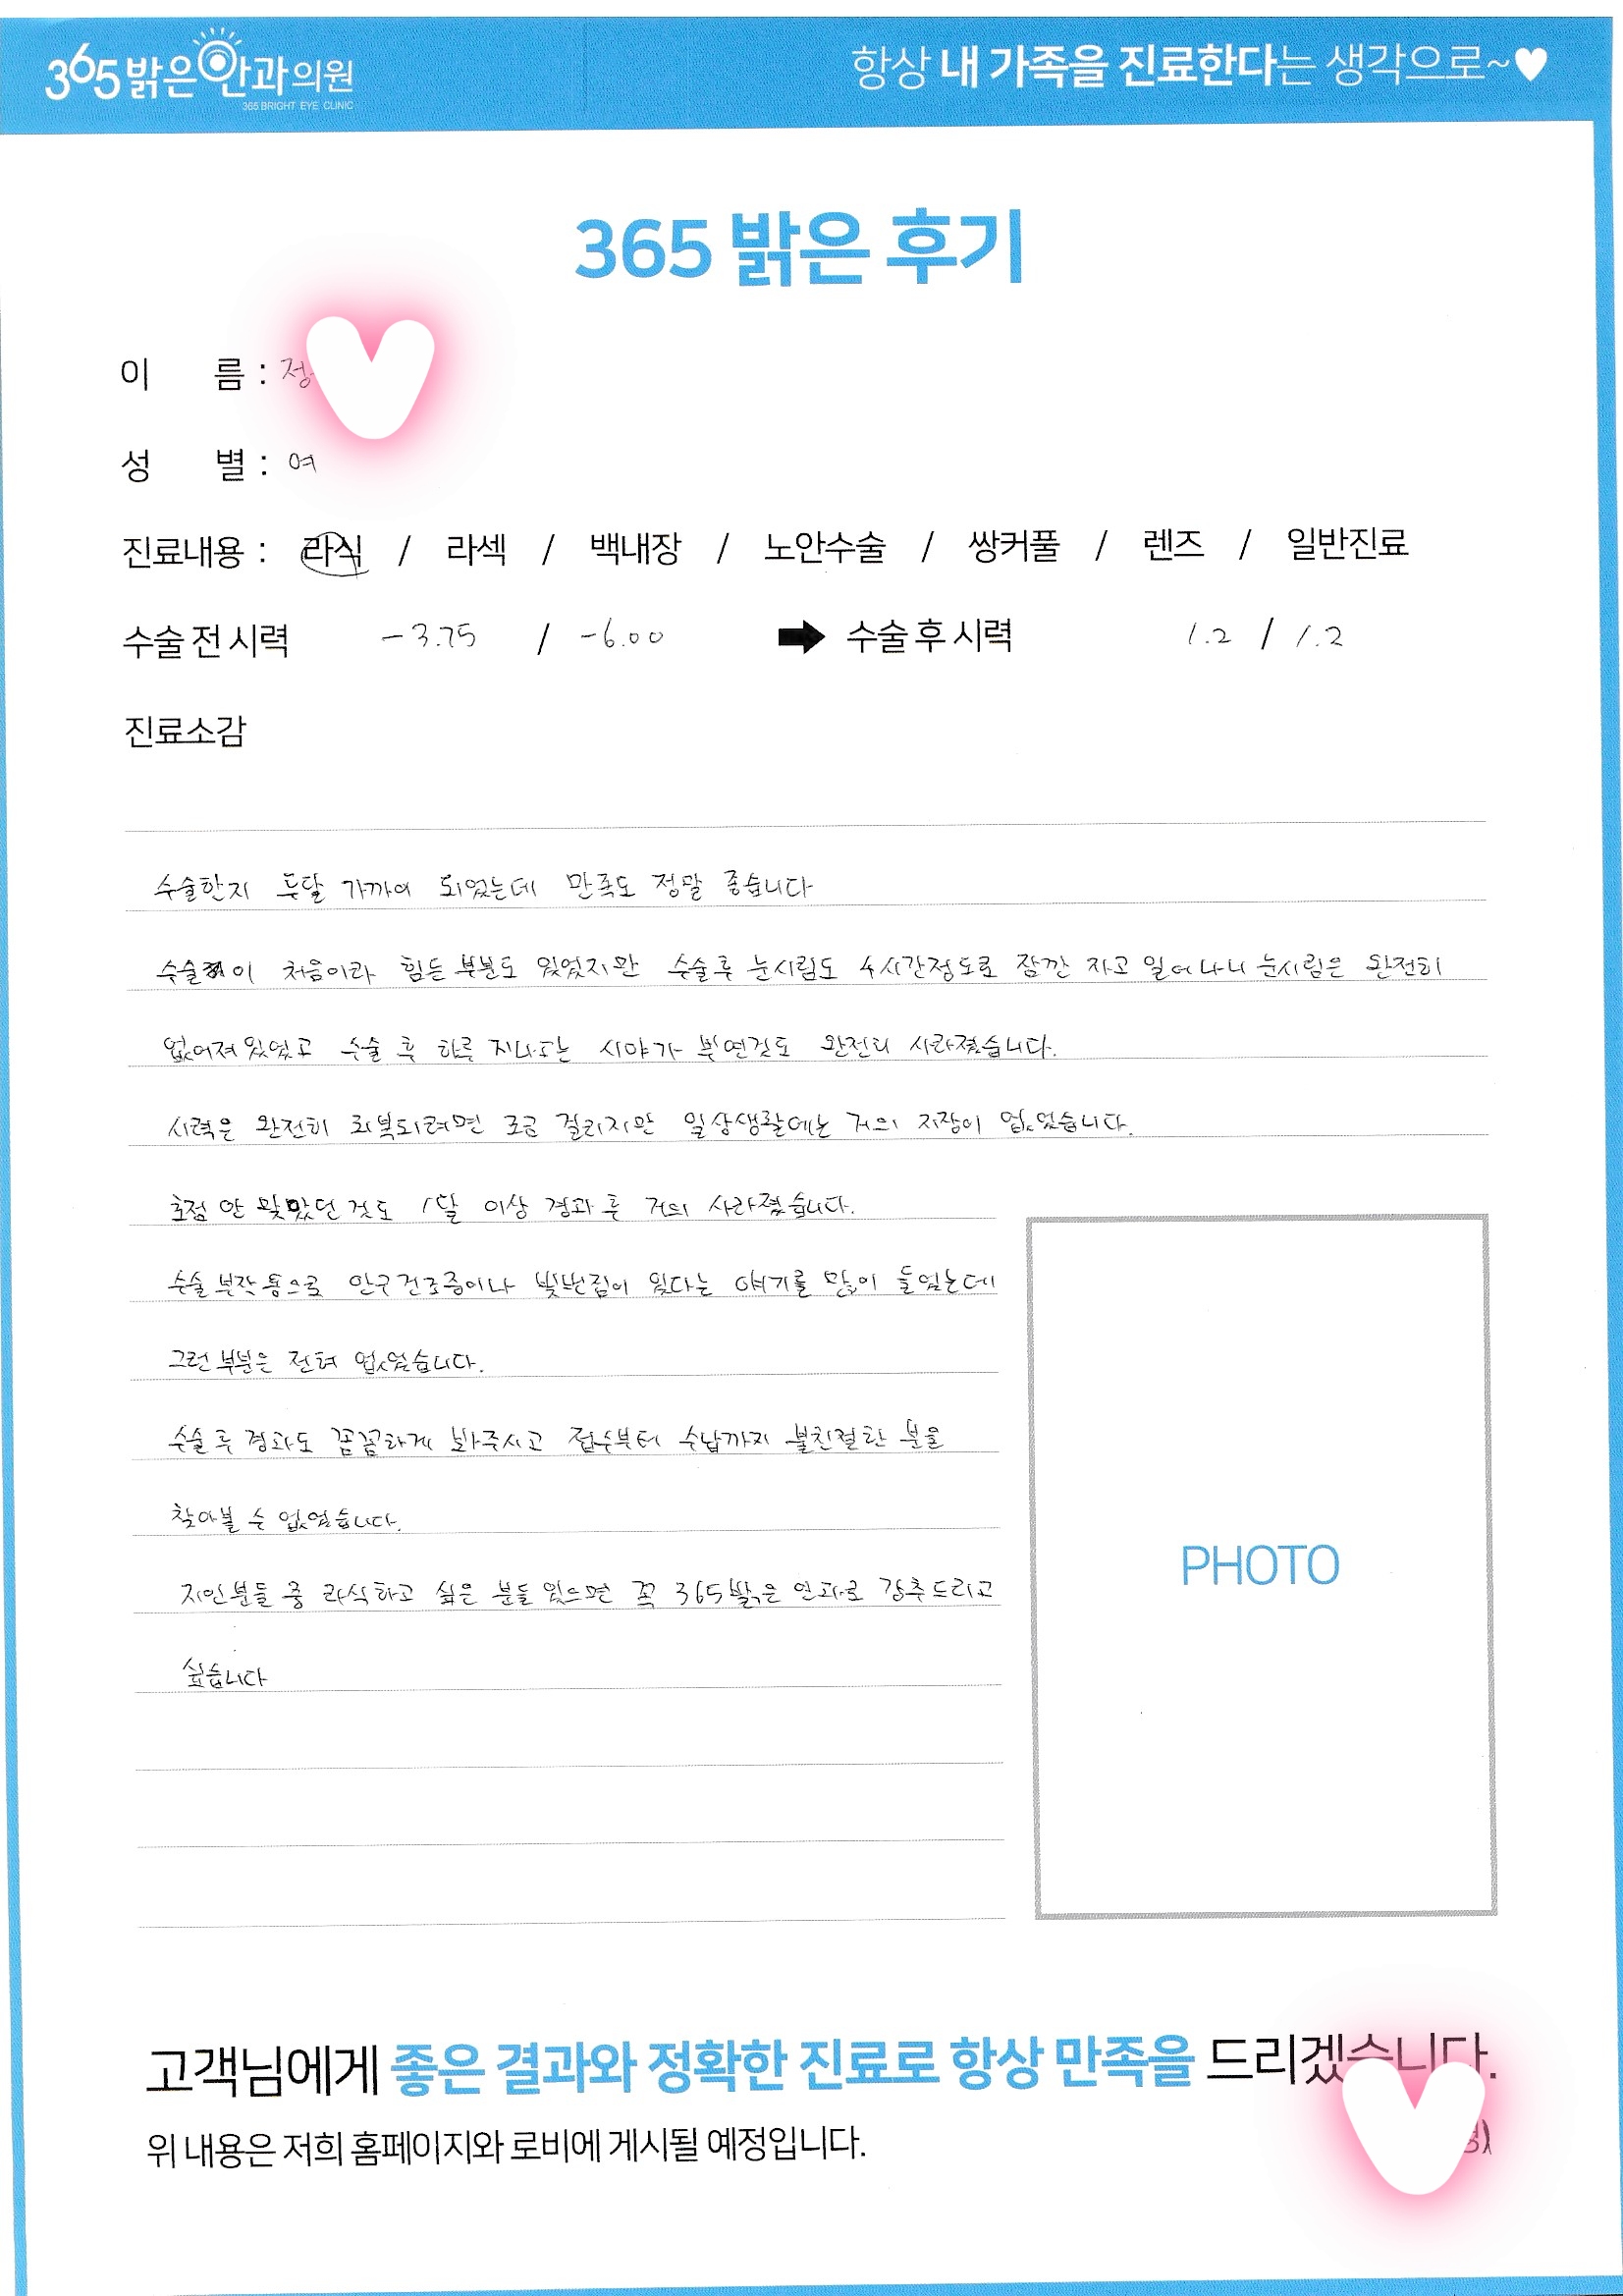 365밝은안과의원
365 BRIGHT EYE CLINIC
항상 내 가족을 진료한다는 생각으로~♥
365 밝은 후기
이 름 : 정
성 별 : 여
진료내용 : 라식 / 라섹 / 백내장 / 노안수술 / 쌍커풀 / 렌즈 / 일반진료
수술 전 시력 -3.75 / -6.00 ➡ 수술 후 시력 1.2 / 1.2
진료소감
수술한지 두달 가까이 되었는데 만족도 정말 좋습니다
수술이 처음이라 힘든 부분도 있었지만 수술후 눈시림도 4시간정도로 잠깐 자고 일어나니 눈시림은 완전히
없어져있었고 수술 후 하루 지나고는 시야가 뿌연것도 완전히 사라졌습니다.
시력은 완전히 회복되려면 조금 걸리지만 일상생활에는 거의 지장이 없었습니다.
초점 안 맞았던 것도 1달 이상 경과 후 거의 사라졌습니다.
수술 부작용으로 안구건조증이나 빛번짐이 있다는 얘기를 많이 들었는데
그런 부분은 전혀 없었습니다.
수술 후 경과도 꼼꼼하게 봐주시고 접수부터 수납까지 불친절한 분을
찾아볼 수 없었습니다.
지인분들 중 라식하고 싶은 분들 있으면 꼭 365밝은 안과로 강추드리고
싶습니다
PHOTO
고객님에게 좋은 결과와 정확한 진료로 항상 만족을 드리겠습니다.
위 내용은 저희 홈페이지와 로비에 게시될 예정입니다.